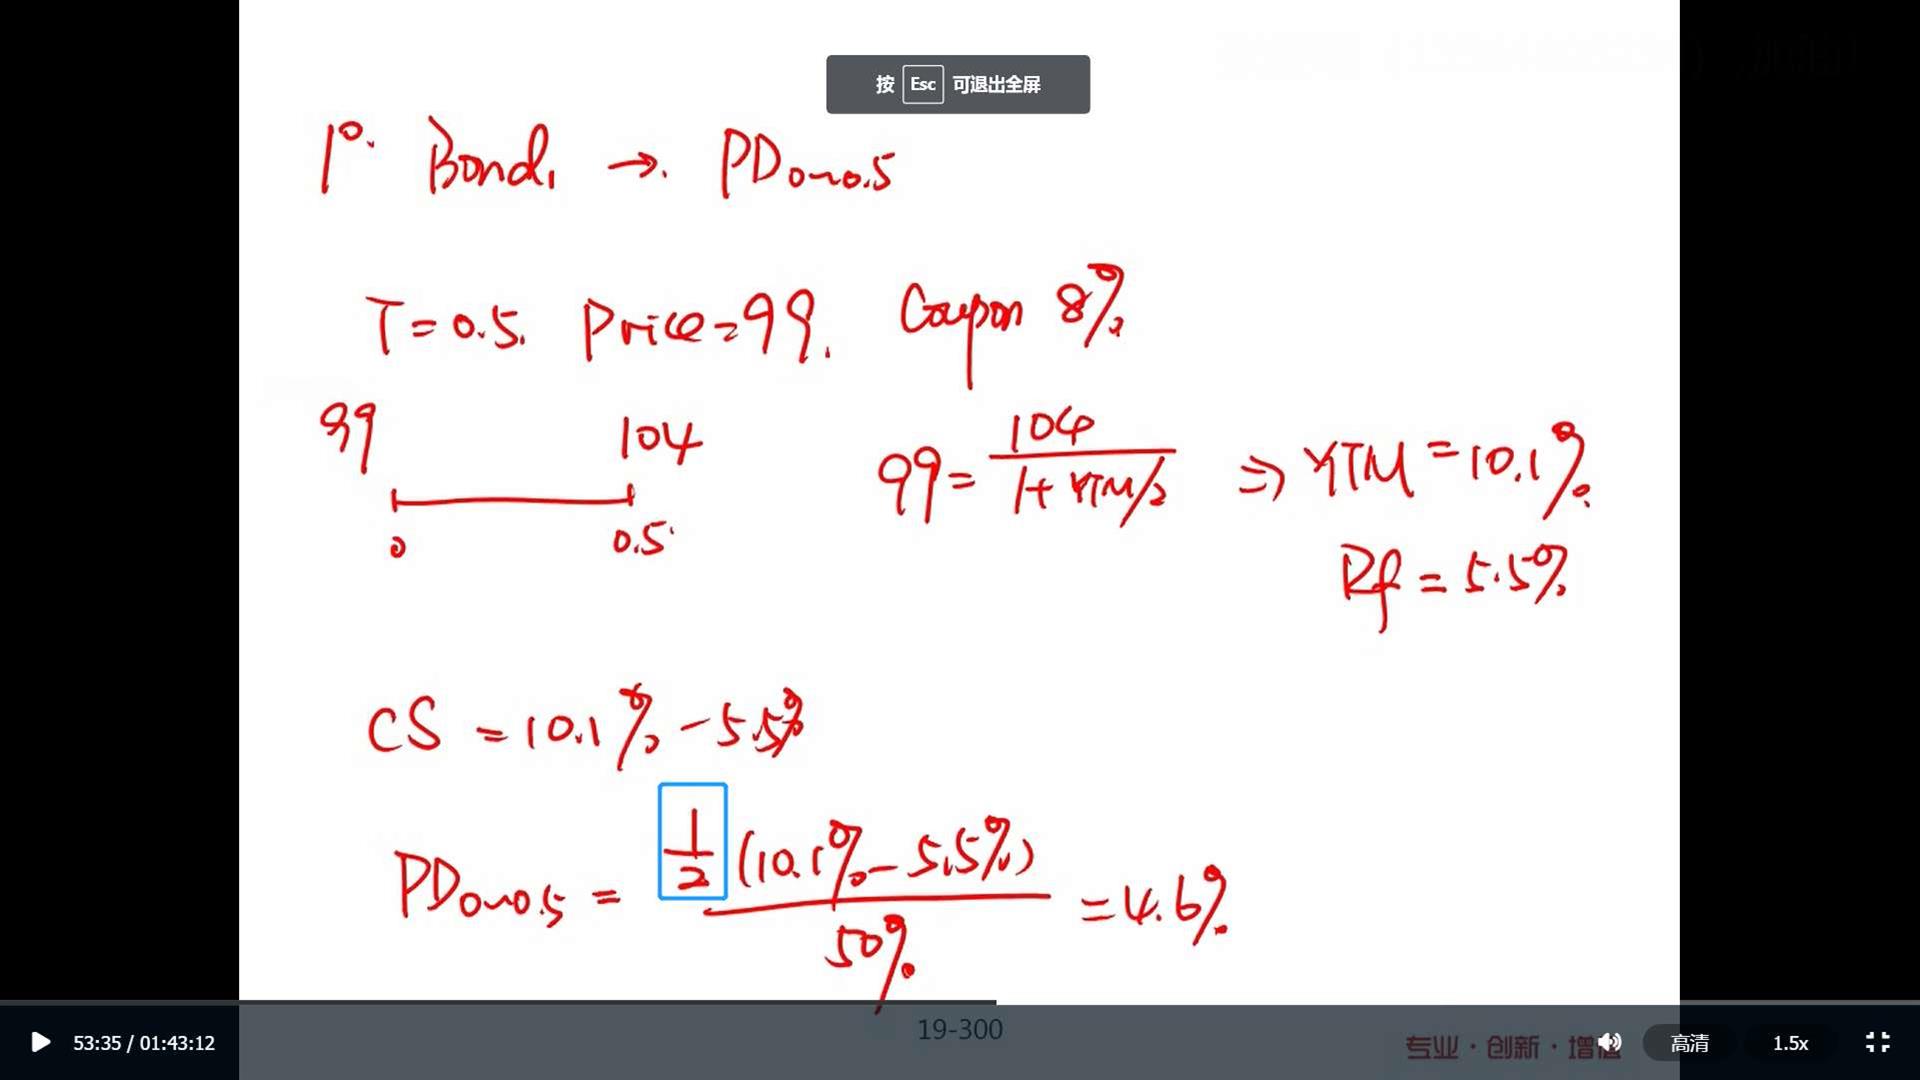 按 Esc 可退出全屏
1°. Bond₁ → PD₀~₀.₅
T=0.5. Price=99. Coupon 8%
99 104
0 0.5
99 = 104 / (1+YTM/2) ⇒ YTM = 10.1%
Rf = 5.5%
CS = 10.1% - 5.5%
PD₀~₀.₅ = 1/2 (10.1% - 5.5%) / 50% = 4.6%
19-300
53:35 / 01:43:12
专业·创新·增值
高清
1.5x